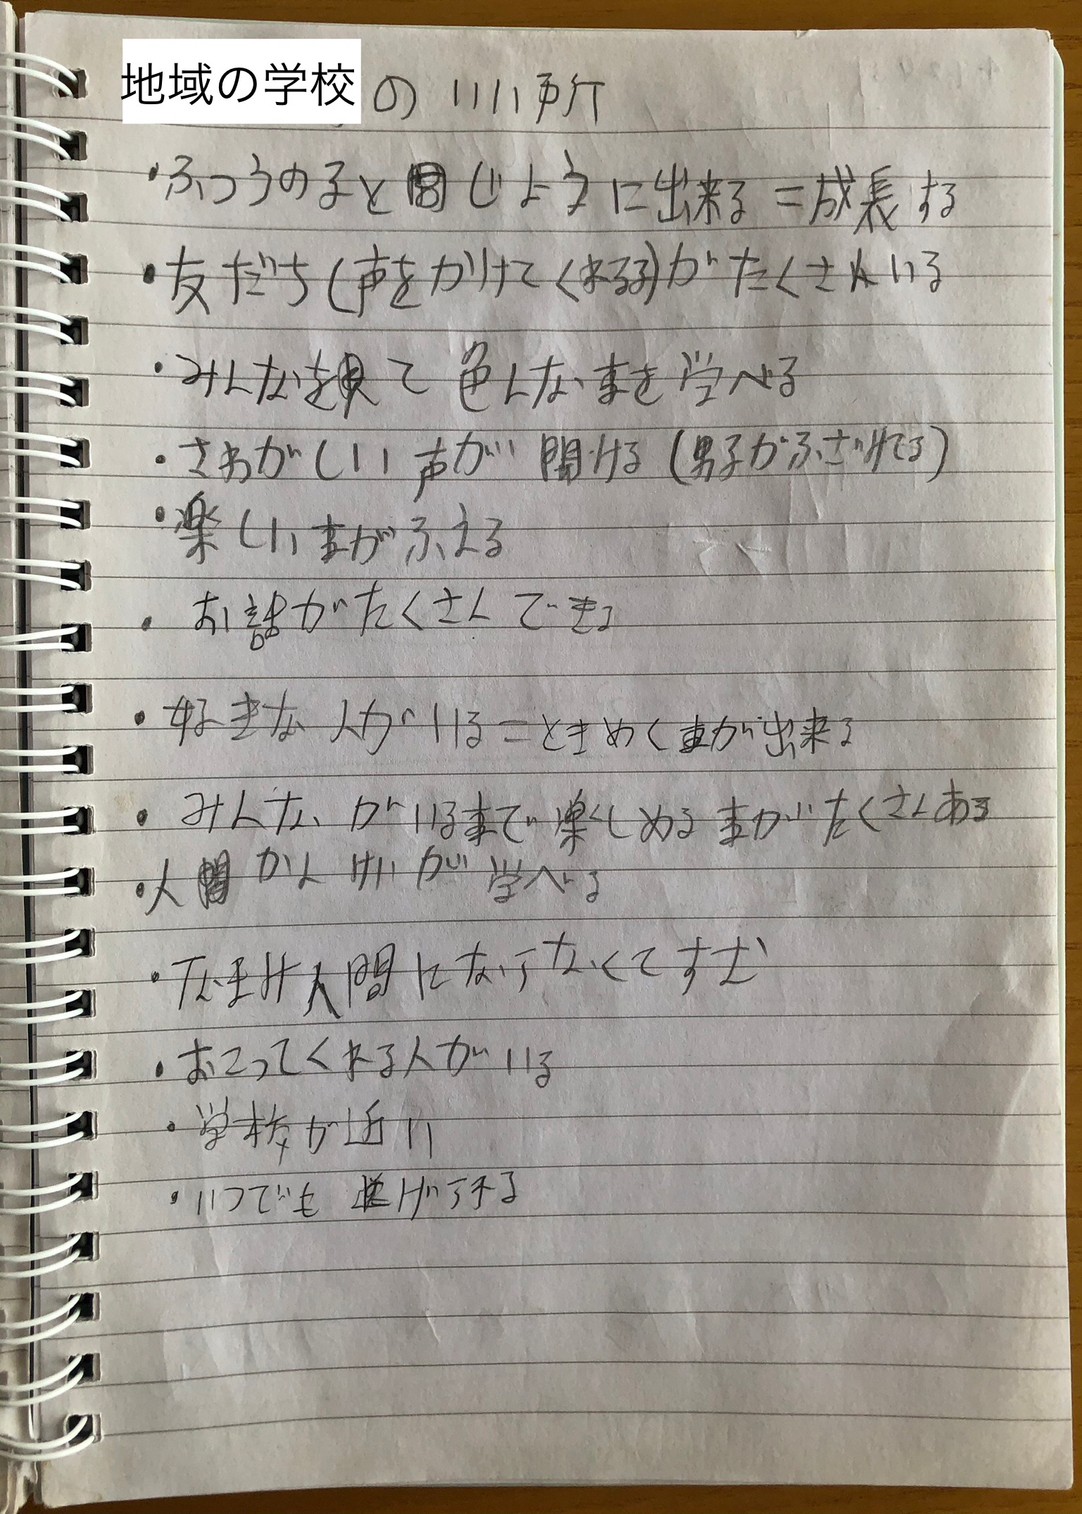 地域の学校の いい所
・ふつうの子と同じように出来る=成長する
・友だち(声をかけてくれる)がたくさんいる
・みんなを見て 色んな事を学べる
・さわがしい声が 聞ける(男子がふざけてる)
・楽しい事がふえる
・お話がたくさんできる
・好きな人がいる=ときめく事が出来る
・みんながいる事で楽しめる事がたくさんある
・人間かんけいが 学べる
・人間になってなくてすむ
・おこってくれる人がいる
・学校が近い
・いつでも 逃げれる